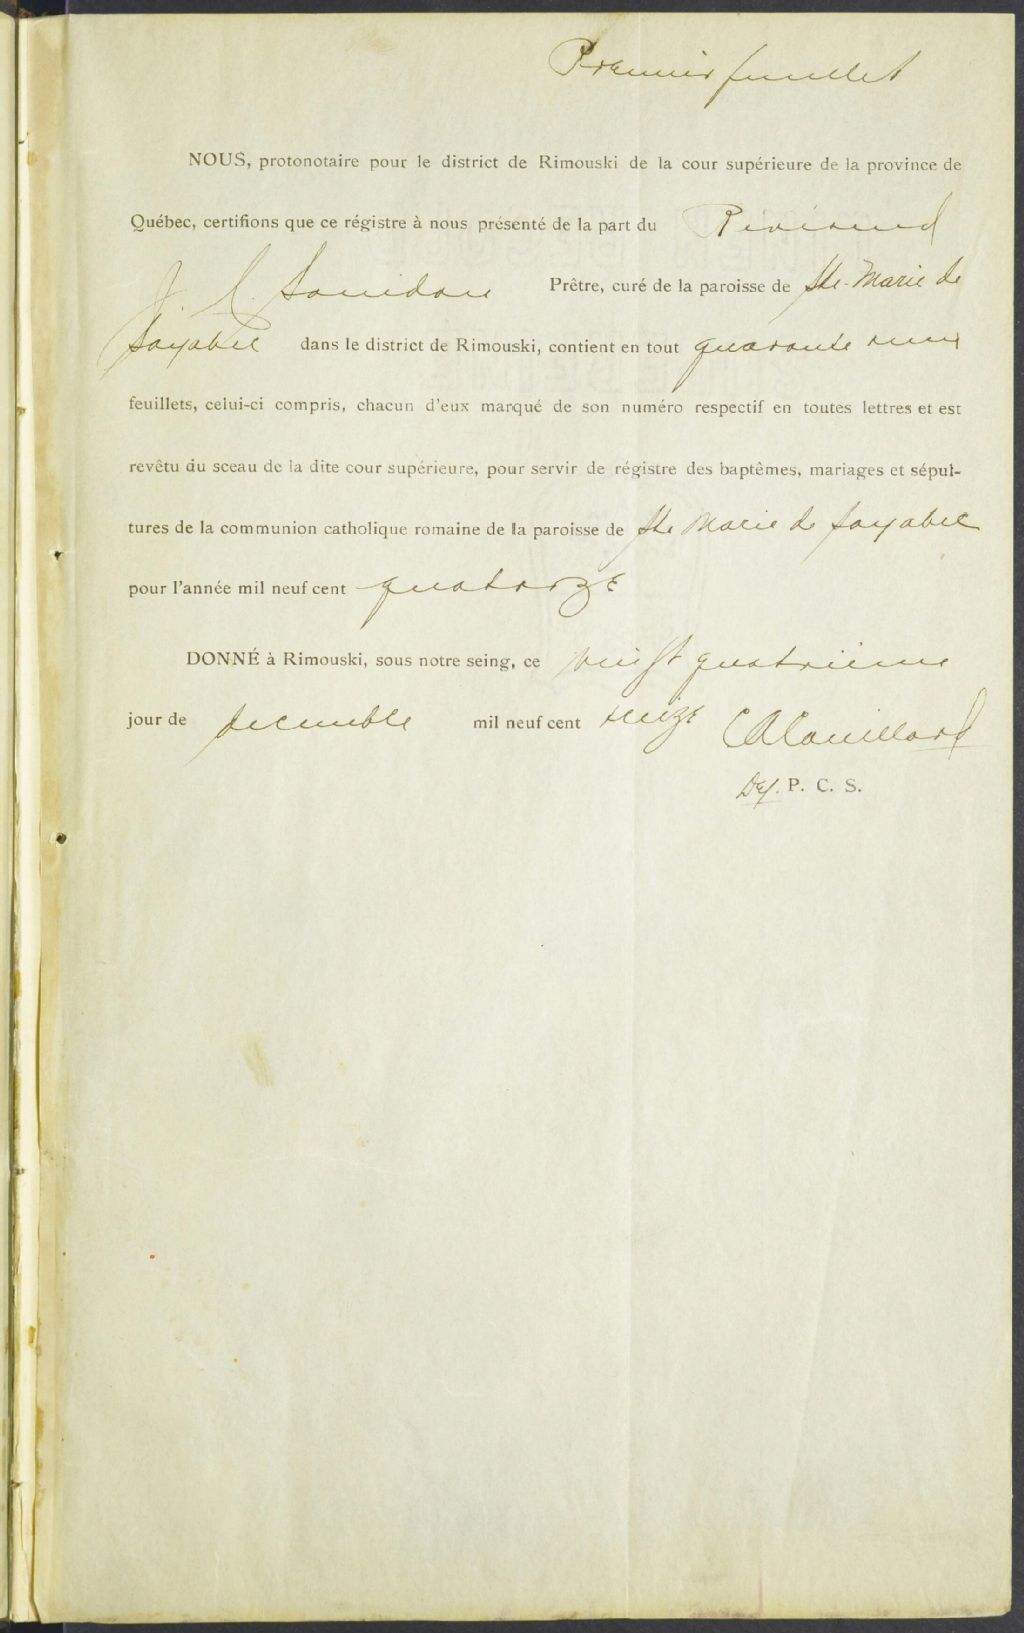 Premier feuillet
NOUS, protonotaire pour le district de Rimouski de la cour supérieure de la province de
Québec, certifions que ce régistre à nous présenté de la part du Révérend
J. C. Saindon Prêtre, curé de la paroisse de Ste-Marie de
Sayabec dans le district de Rimouski, contient en tout quarante
feuillets, celui-ci compris, chacun d'eux marqué de son numéro respectif en toutes lettres et est
revêtu du sceau de la dite cour supérieure, pour servir de régistre des baptêmes, mariages et sépul-
tures de la communion catholique romaine de la paroisse de Ste Marie de Sayabec
pour l'année mil neuf cent quatorze
DONNÉ à Rimouski, sous notre seing, ce vingt quatrième
jour de décembre mil neuf cent treize
Dep. P. C. S.